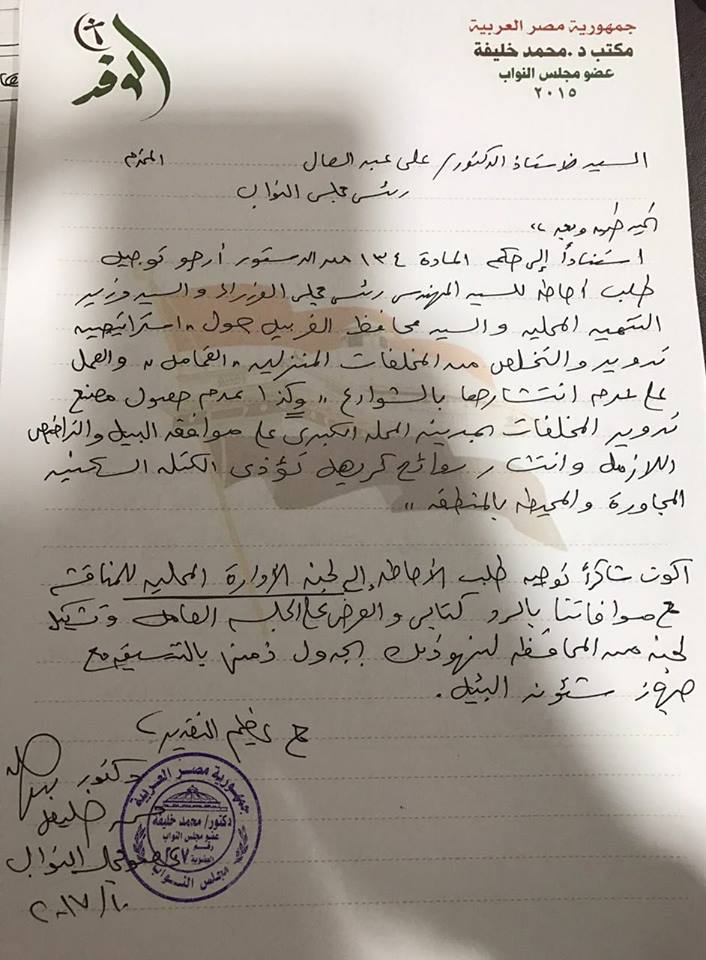 الوفد
جمهورية مصر العربية
مكتب د. محمد خليفة
عضو مجلس النواب
٢٠١٥
السيد الاستاذ الدكتور/ على عبد العال المحترم
رئيس مجلس النواب
تحيه طيبه وبعد ،،
استناداً إلى حكم المادة ١٣٤ من الدستور أرجو توجيه
طلب احاطه للسيد المهندس رئيس مجلس الوزراء والسيد وزير
التنميه المحليه والسيد محافظ الغربيه حول " استراتيجيه
تدوير والتخلص من المخلفات المنزليه " القمامه " والعمل
على عدم انتشارها بالشوارع " وكذا عدم حصول مصنع
تدوير المخلفات بمدينه المحله الكبرى على موافقه البيئه والتراخيص
اللازمه وانتشار روائح كريهه تؤذى الكتله السكنيه
المجاورة والمحيطه بالمنطقه "
اكون شاكراً توجيه طلب الأحاطه إلى لجنة الإدارة المحليه للمناقشه
مع موافاتنا بالرد كتابى والعرض على الجلسه العامه وتشكيل
لجنه من المحافظه لتنفيذ ذلك بجدول زمنى بالتنسيق مع
جهاز شئون البيئه .
مع عظيم التقدير ،
دكتور
محمد خليفه
عضو مجلس النواب
٢٠١٧/١٠
جمهورية مصر العربية
دكتور/ محمد خليفة
عضو مجلس النواب
رقم
العضوية
مجلس النواب